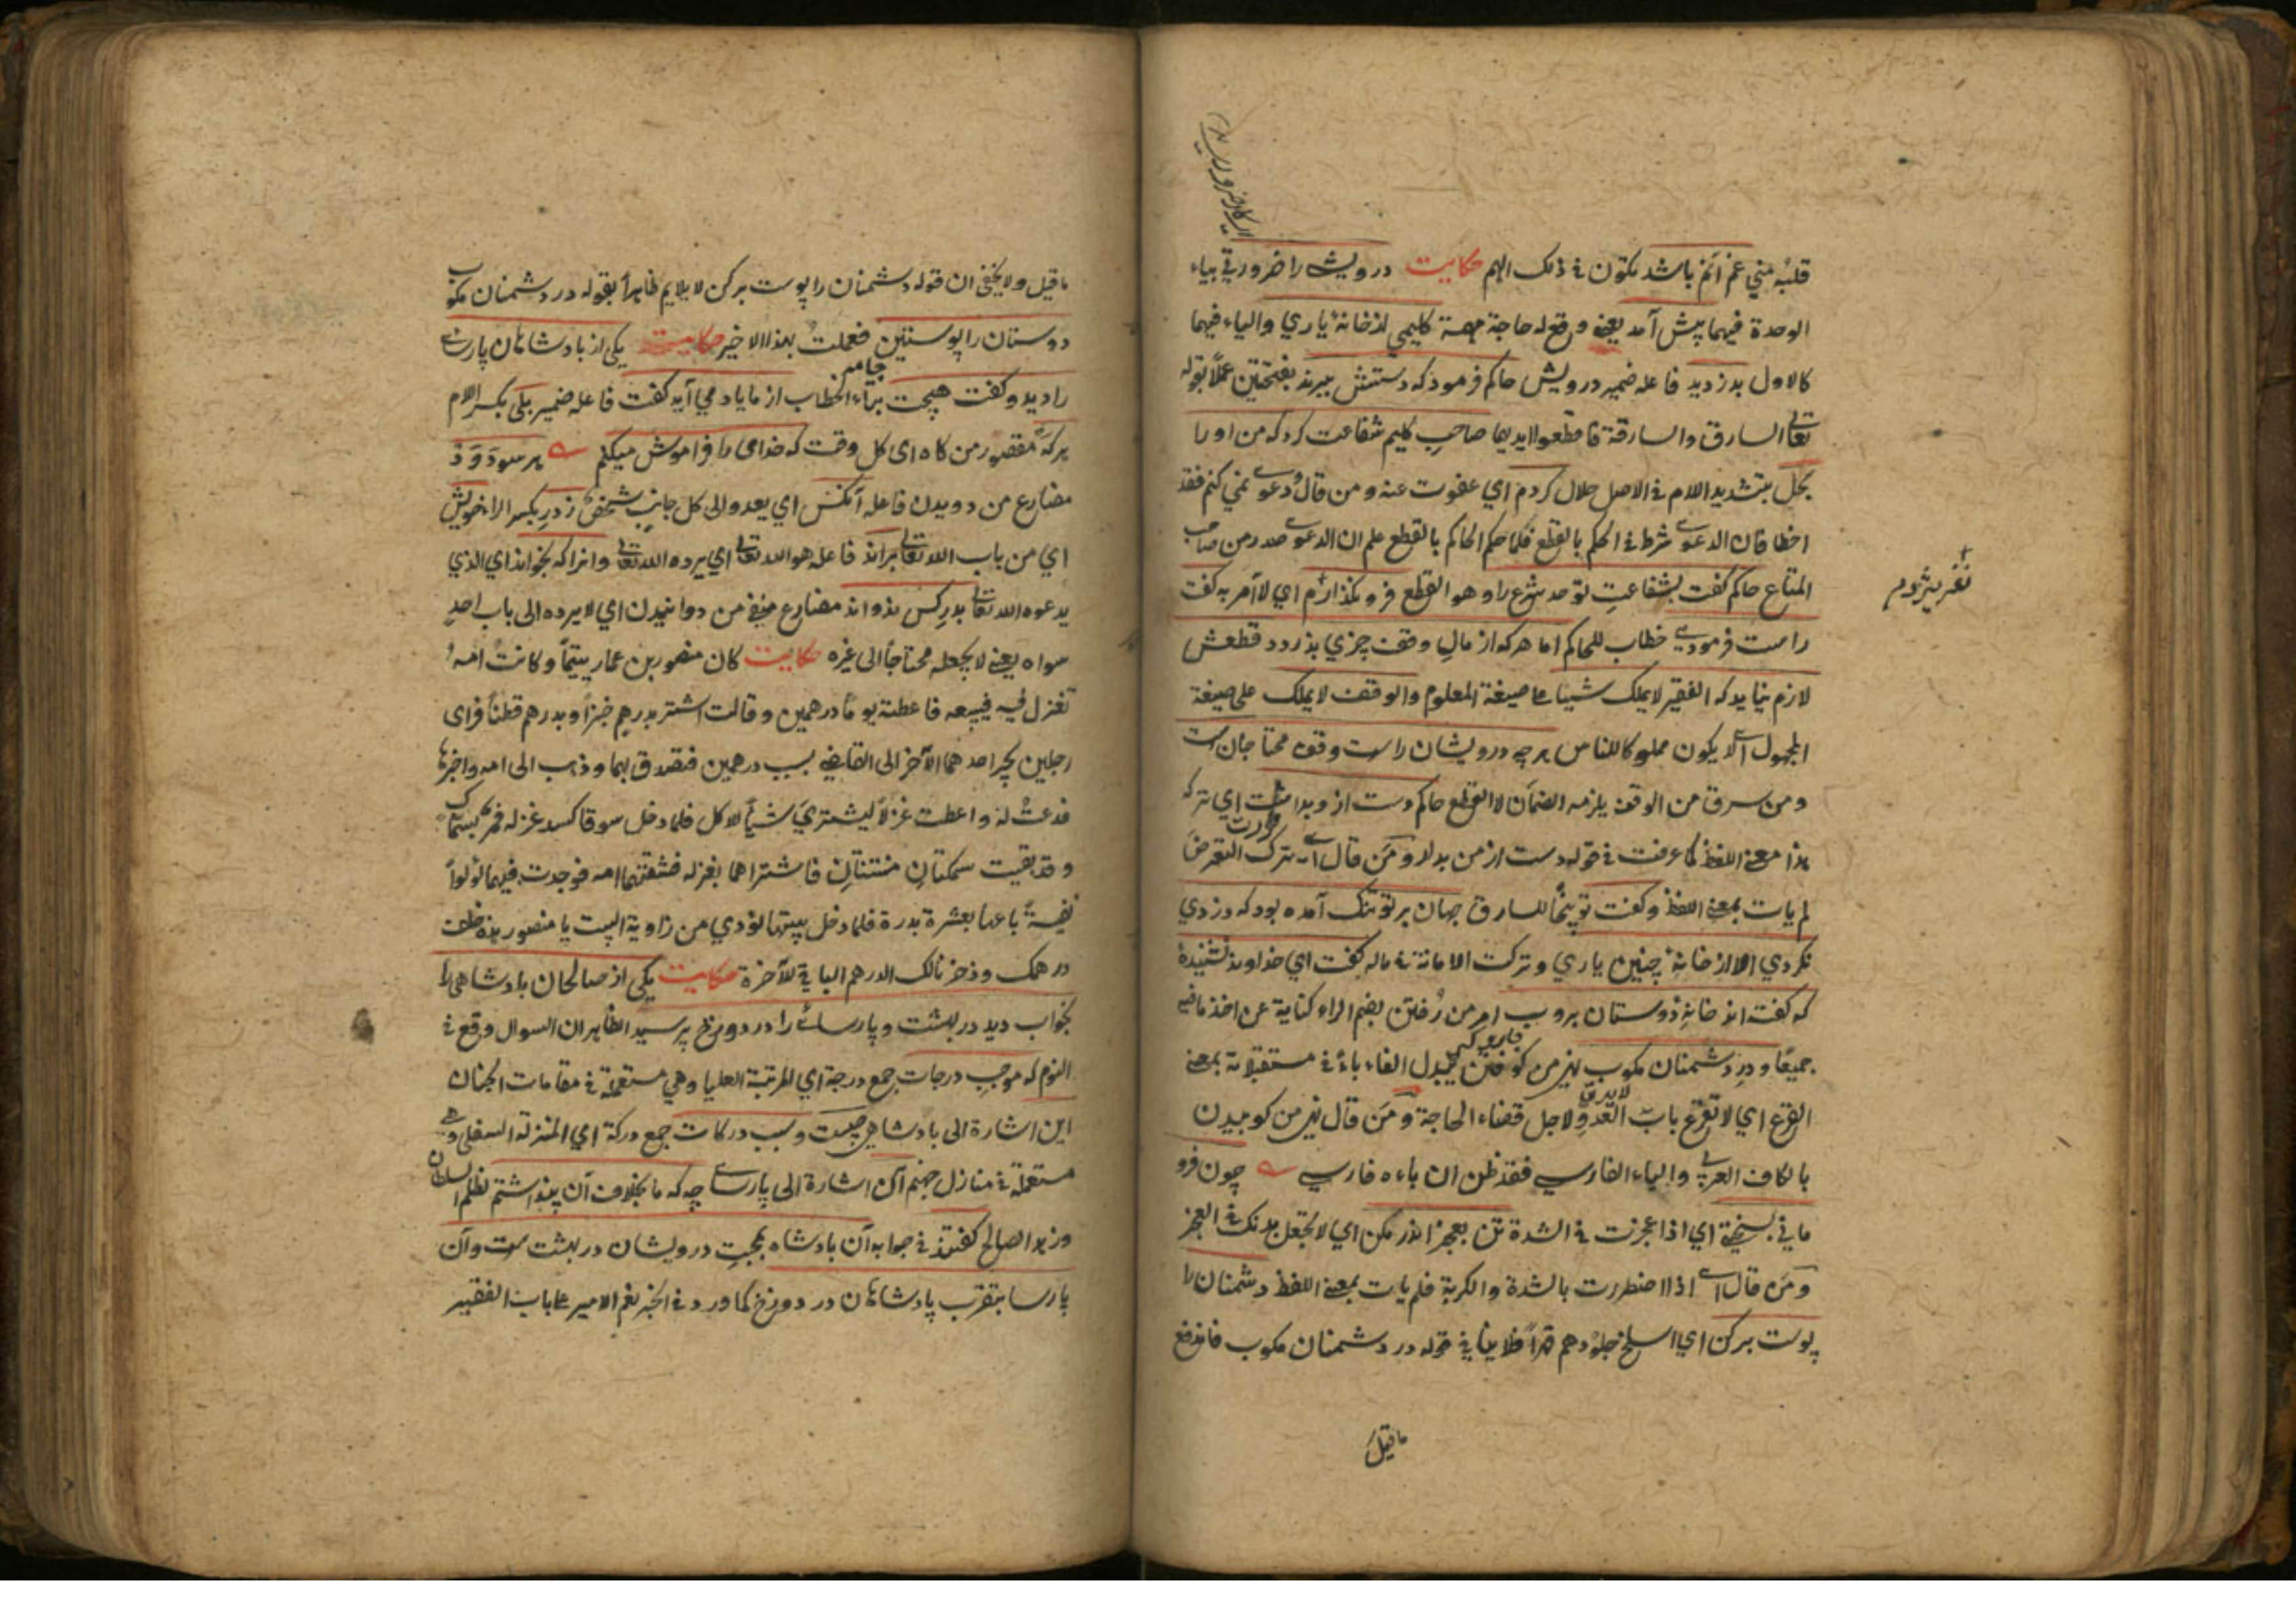 قلبه مني غم انم باشد يكون في ذلك الهم حكايت درويشى را ضرورتي بياء
الوحدة فيهما پيش آمد يعني وقع له حاجة مهمة گليمى از خانهٔ ياري والياء فيهما
كالاول بدزديد فاعله ضمير درويش حاكم فرمود كه دستش ببرند بفتحتين عملاً بقوله
تعالى السارق والسارقة فاقطعوا ايديهما صاحب گليم شفاعت كرد كه من او را
بحل بتشديد اللام في الاصل حلال كردم اي عفوت عنه ومن قال دعوى نمي كنم فقد
اخطا فان الدعوى شرط في الحكم بالقطع فلما حكم الحاكم بالقطع علم ان الدعوى صدر من صاحب
المتاع حاكم گفت بشفاعت تو حد شرع را وهو القطع فرو نگذارم اي لا آمر به گفت
راست فرمودى خطاب للحاكم اما هركه از مال وقف چيزي بدزدد قطعش
لازم نيايد كه الفقير لا يملك شيئا على صيغة المعلوم والوقف لا يملك على صيغة
المجهول اى لا يكون مملوكا للناس هرچه درويشان راست وقف محتاجان است
ومن سرق من الوقف يلزمه الضمان لا القطع حاكم دست از و بداشت اي تركه
هذا معنى اللفظ كما عرفت في قوله دست از من بدار ومن قال اى ترك التعرض
لم يات بمعنى اللفظ وگفت توبيخًا للسارق جهان بر تو تنگ آمده بود كه دزدي
نكردي الا از خانهٔ چنين ياري وتركت الامانة في ماله گفت اي خداوند نشنيدهٔ
كه گفته اند خانهٔ دوستان بروب امر من رُفتن بضم الراء كناية عن اخذ ما فيه
جميعًا ودرِ دشمنان مكوب نهي من كوفتن تبدل الفاء باءً في مستقبلاته بمعنى
القرع اي لا تقرع باب العدوّ لاجل قضاء الحاجة ومن قال نهي من كوبيدن
بالكاف العربي والياء الفارسي فقد ظن ان باءه فارسي چون فرو
ماني بسختي اي اذا عجزت في الشدة تن بعجز اندر مكن اي لا تجعل بدنك في العجز
ومن قال اى اذا اضطررت بالشدة والكربة فلم يات بمعنى اللفظ دشمنان را
پوست بركن اي اسلخ جلودهم قهراً فلا ينافي قوله در دشمنان مكوب فاندفع
ما قيل
ما قيل ولا يخفى ان قوله دشمنان را پوست بركن لا يلايم ظاهراً بقوله در دشمنان مكوب
دوستان را پوستين فعملت بهذا الاخير حكايت يكى از بادشاهان پارسايى
را ديد وگفت هيچت بتاء الخطاب از ما ياد مي آيد گفت فاعله ضمير بلى بكسر اللام
هرگه مقصور من گاه اى كل وقت كه خداى را فراموش ميكنم هر سو دَوَد
مضارع من دويدن فاعله آنكس اي يعدو الى كل جانب شخص زدرِ بكسر الراء خويش
اي من باب الله تعالى براند فاعله هو الله تعالى اي يرده الله تعالى وانرا كه بخواند اي الذي
يدعوه الله تعالى بدرِ كس ندواند مضارع منفي من دوانيدن اي لا يرده الى باب احد
سواه يعني لا يجعله محتاجاً الى غيره حكايت كان منصور بن عمار يتيماً وكانت امه
تغزل فيه فيبيعه فاعطته يوماً درهمين وقالت اشتر بدرهم خبزاً وبدرهم قطناً فراى
رجلين يجر احدهما الآخر الى القاضي بسبب درهمين فتصدق بهما وذهب الى امه واخبرها
فدعت له واعطت غزلاً ليشتري شيأً للاكل فلما دخل سوقا كسد غزله فمر بسماك
وقد بقيت سمكتان منتنتان فاشتراهما بغزله فشقتهما امه فوجدت فيهما لؤلؤاً
نفيسةً باعها بعشرة بدرة فلما دخل بيتها نودي من زاوية البيت يا منصور هذه خلف
درهمك وذخرنا لك الدرهم الباقي للآخرة حكايت يكى از صالحان بادشاهى را
بخواب ديد در بهشت وپارسائى را در دوزخ پرسيد الظاهر ان السوال وقع في
النوم كه موجب درجات جمع درجة اي المرتبة العليا وهي مستعملة في مقامات الجنان
اين اشارة الى بادشاهى چيست وسبب دركات جمع دركة اي المنزلة السفلى وهي
مستعملة في منازل جهنم آن اشارة الى پارسا چه كه ما بخلاف آن پنداشتم لظلم السلطان
وزهد الصالح گفتند في جوابه آن بادشاه بمحبت درويشان در بهشت ست وآن
پارسا بتقرب پادشاهان در دوزخ كما ورد في الخبر نعم الامير على باب الفقير